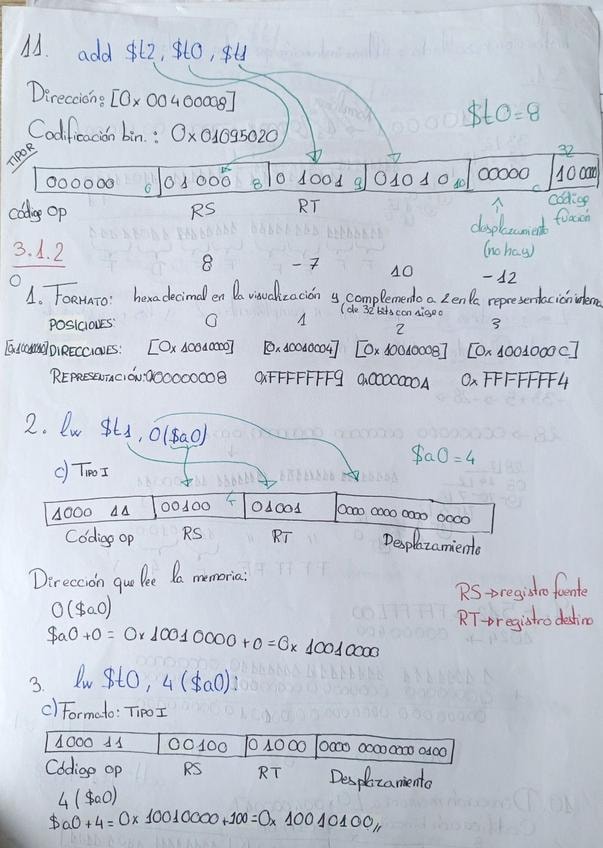 11. add $t2, $t0, $t1
Dirección: [0x00400008]
$t0=8
Codificación bin.: 0x01095020
TIPO R
32
000000 6 01000 8 01001 9 01010 10 00000 10 0000
Código Op RS RT desplazamiento (no hay) código función
3.1.2
8 -7 10 -12
1. FORMATO: hexadecimal en la visualización y complemento a 2 en la representación interna
(de 32 bits con signo
POSICIONES: 0 1 2 3
DIRECCIONES: [0x10010000] [0x10010004] [0x10010008] [0x1001000C]
REPRESENTACIÓN: 0x00000008 0xFFFFFFF9 0x0000000A 0xFFFFFFF4
2. lw $t1, 0($a0)
$a0=4
c) TIPO I
1000 11 00100 4 01001 0000 0000 0000 0000
Código op RS RT Desplazamiento
Dirección que lee la memoria:
RS → registro fuente
0($a0)
RT → registro destino
$a0+0 = 0x10010000+0=0x 10010000
3. lw $t0, 4($a0):
c) Formato: TIPO I
1000 11 00100 01000 0000 0000 0000 0100
Código op RS RT Desplazamiento
4($a0)
$a0+4=0x10010000+100=0x 10010100,,